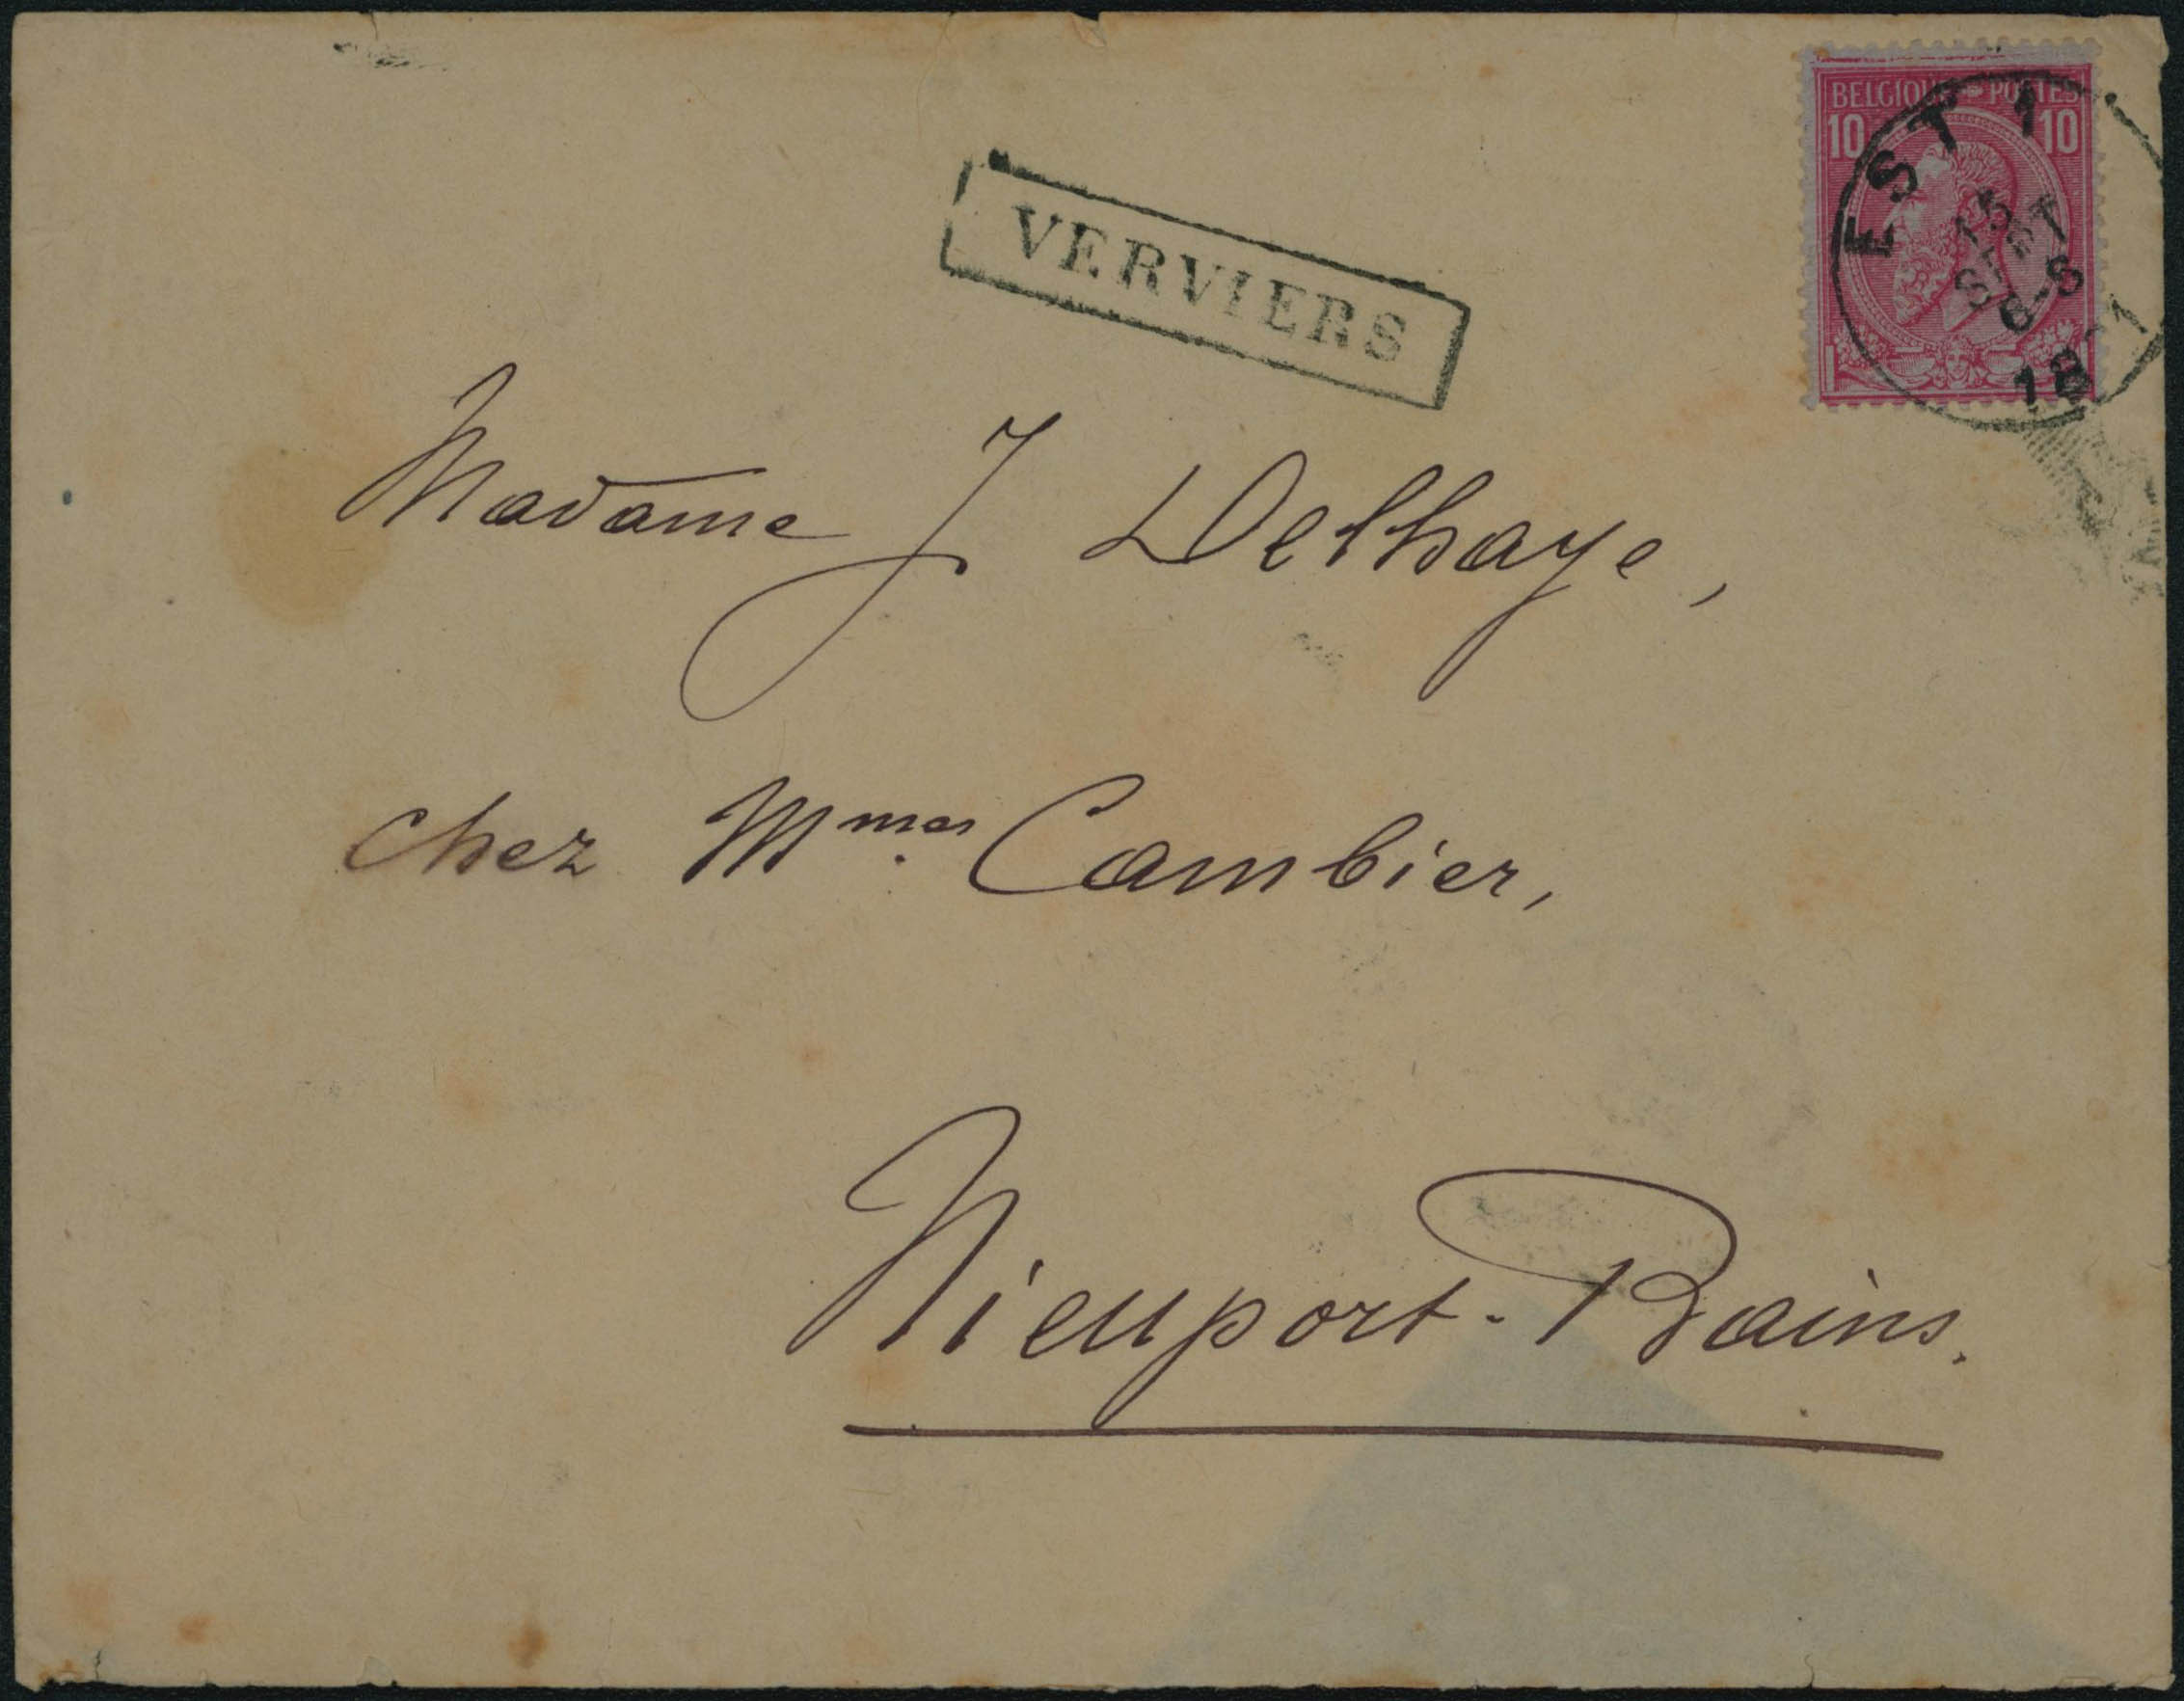 BELGIQUE POSTES
10 10
EST 1
15
SEPT
6-8
18
VERVIERS
Madame J Delhaye,
chez Mmes Cambier,
Nieuport-Bains.